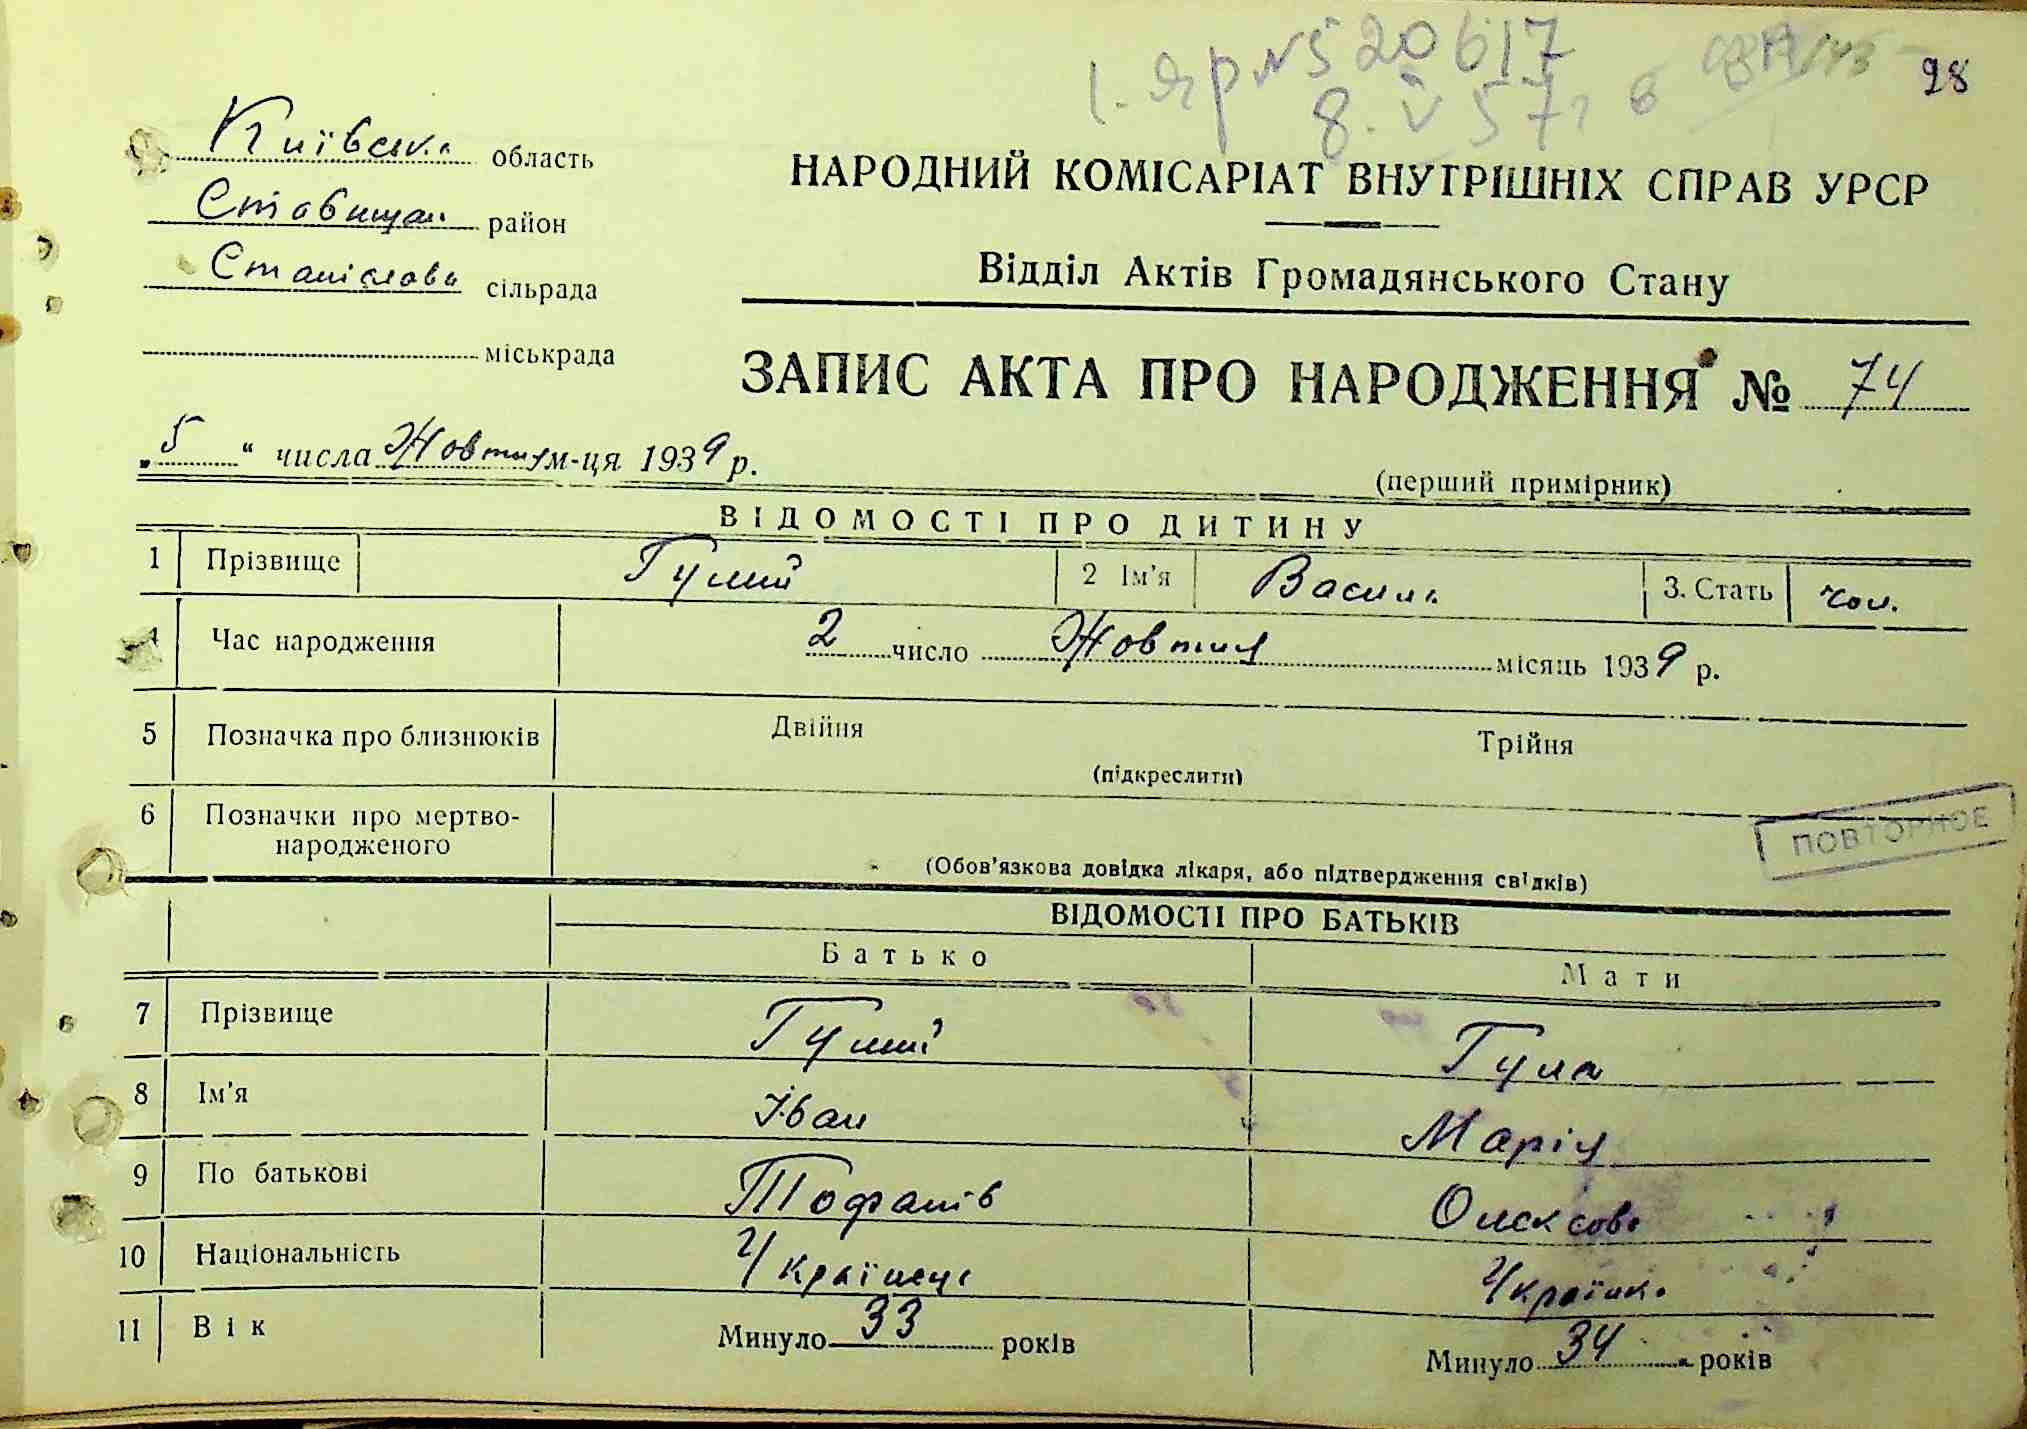 I. ЯР № 520617
8. V 57 г
98
Київська область
НАРОДНИЙ КОМІСАРІАТ ВНУТРІШНІХ СПРАВ УРСР
Ставищан район
Відділ Актів Громадянського Стану
Станіслави сільрада
міськрада
ЗАПИС АКТА ПРО НАРОДЖЕННЯ № 74
„5“ числа Жовтня м-ця 1939 р.
(перший примірник)
ВІДОМОСТІ ПРО ДИТИНУ
1 Прізвище Гулий 2 Ім'я Василь 3. Стать чол.
4 Час народження 2 число Жовтня місяць 1939 р.
5 Позначка про близнюків Двійня Трійня
(підкреслити)
6 Позначки про мертво-
народженого
(Обов'язкова довідка лікаря, або підтвердження свідків)
ПОВТОРНОЕ
ВІДОМОСТІ ПРО БАТЬКІВ
Батько Мати
7 Прізвище Гулий Гула
8 Ім'я Іван Марія
9 По батькові Тофанів Олексова
10 Національність Українець Українка
11 Вік Минуло 33 років Минуло 34 років